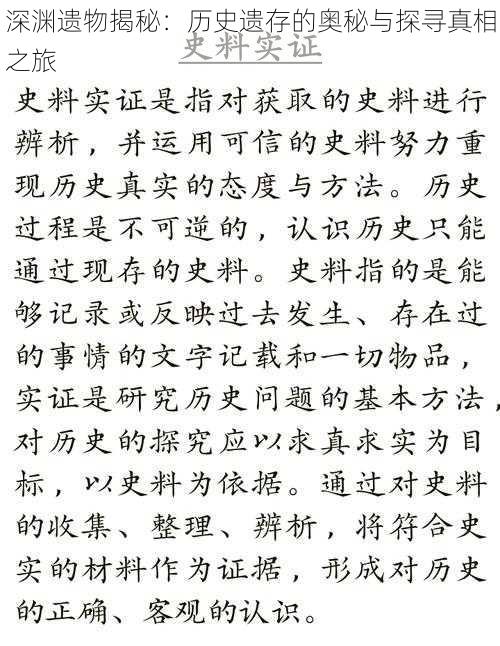 深渊遗物揭秘：历史遗存的奥秘与探寻真相
之旅
史料实证
史料实证是指对获取的史料进行
辨析，并运用可信的史料努力重
现历史真实的态度与方法。历史
过程是不可逆的，认识历史只能
通过现存的史料。史料指的是能
够记录或反映过去发生、存在过
的事情的文字记载和一切物品，
实证是研究历史问题的基本方法，
对历史的探究应以求真求实为目
标，以史料为依据。通过对史料
的收集、整理、辨析，将符合史
实的材料作为证据，形成对历史
的正确、客观的认识。